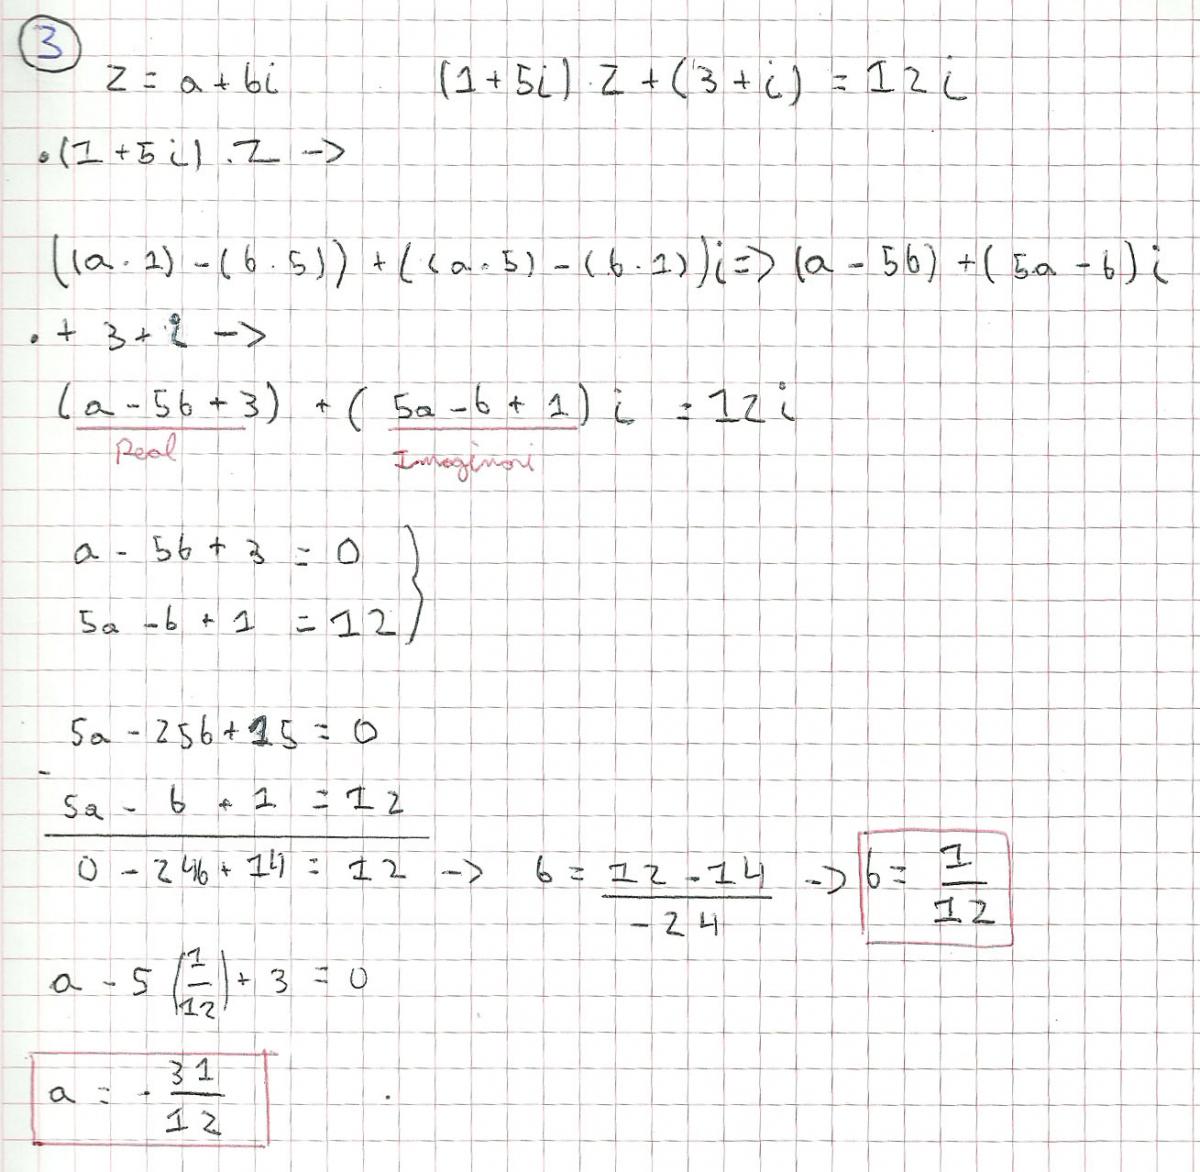 3
z = a + bi (1 + 5i) · z + (3 + i) = 12i
· (1 + 5i) · z ->
((a · 1) - (b · 5)) + ((a · 5) - (b · 1))i => (a - 5b) + (5a - b)i
· + 3 + i ->
(a - 5b + 3) + (5a - b + 1)i = 12i
Real Imaginari
a - 5b + 3 = 0 }
5a - b + 1 = 12
5a - 25b + 15 = 0
-
5a - b + 1 = 12
0 - 24b + 14 = 12 -> b = \frac{12 - 14}{-24} -> b = \frac{1}{12}
a - 5(\frac{1}{12}) + 3 = 0
a = -\frac{31}{12}